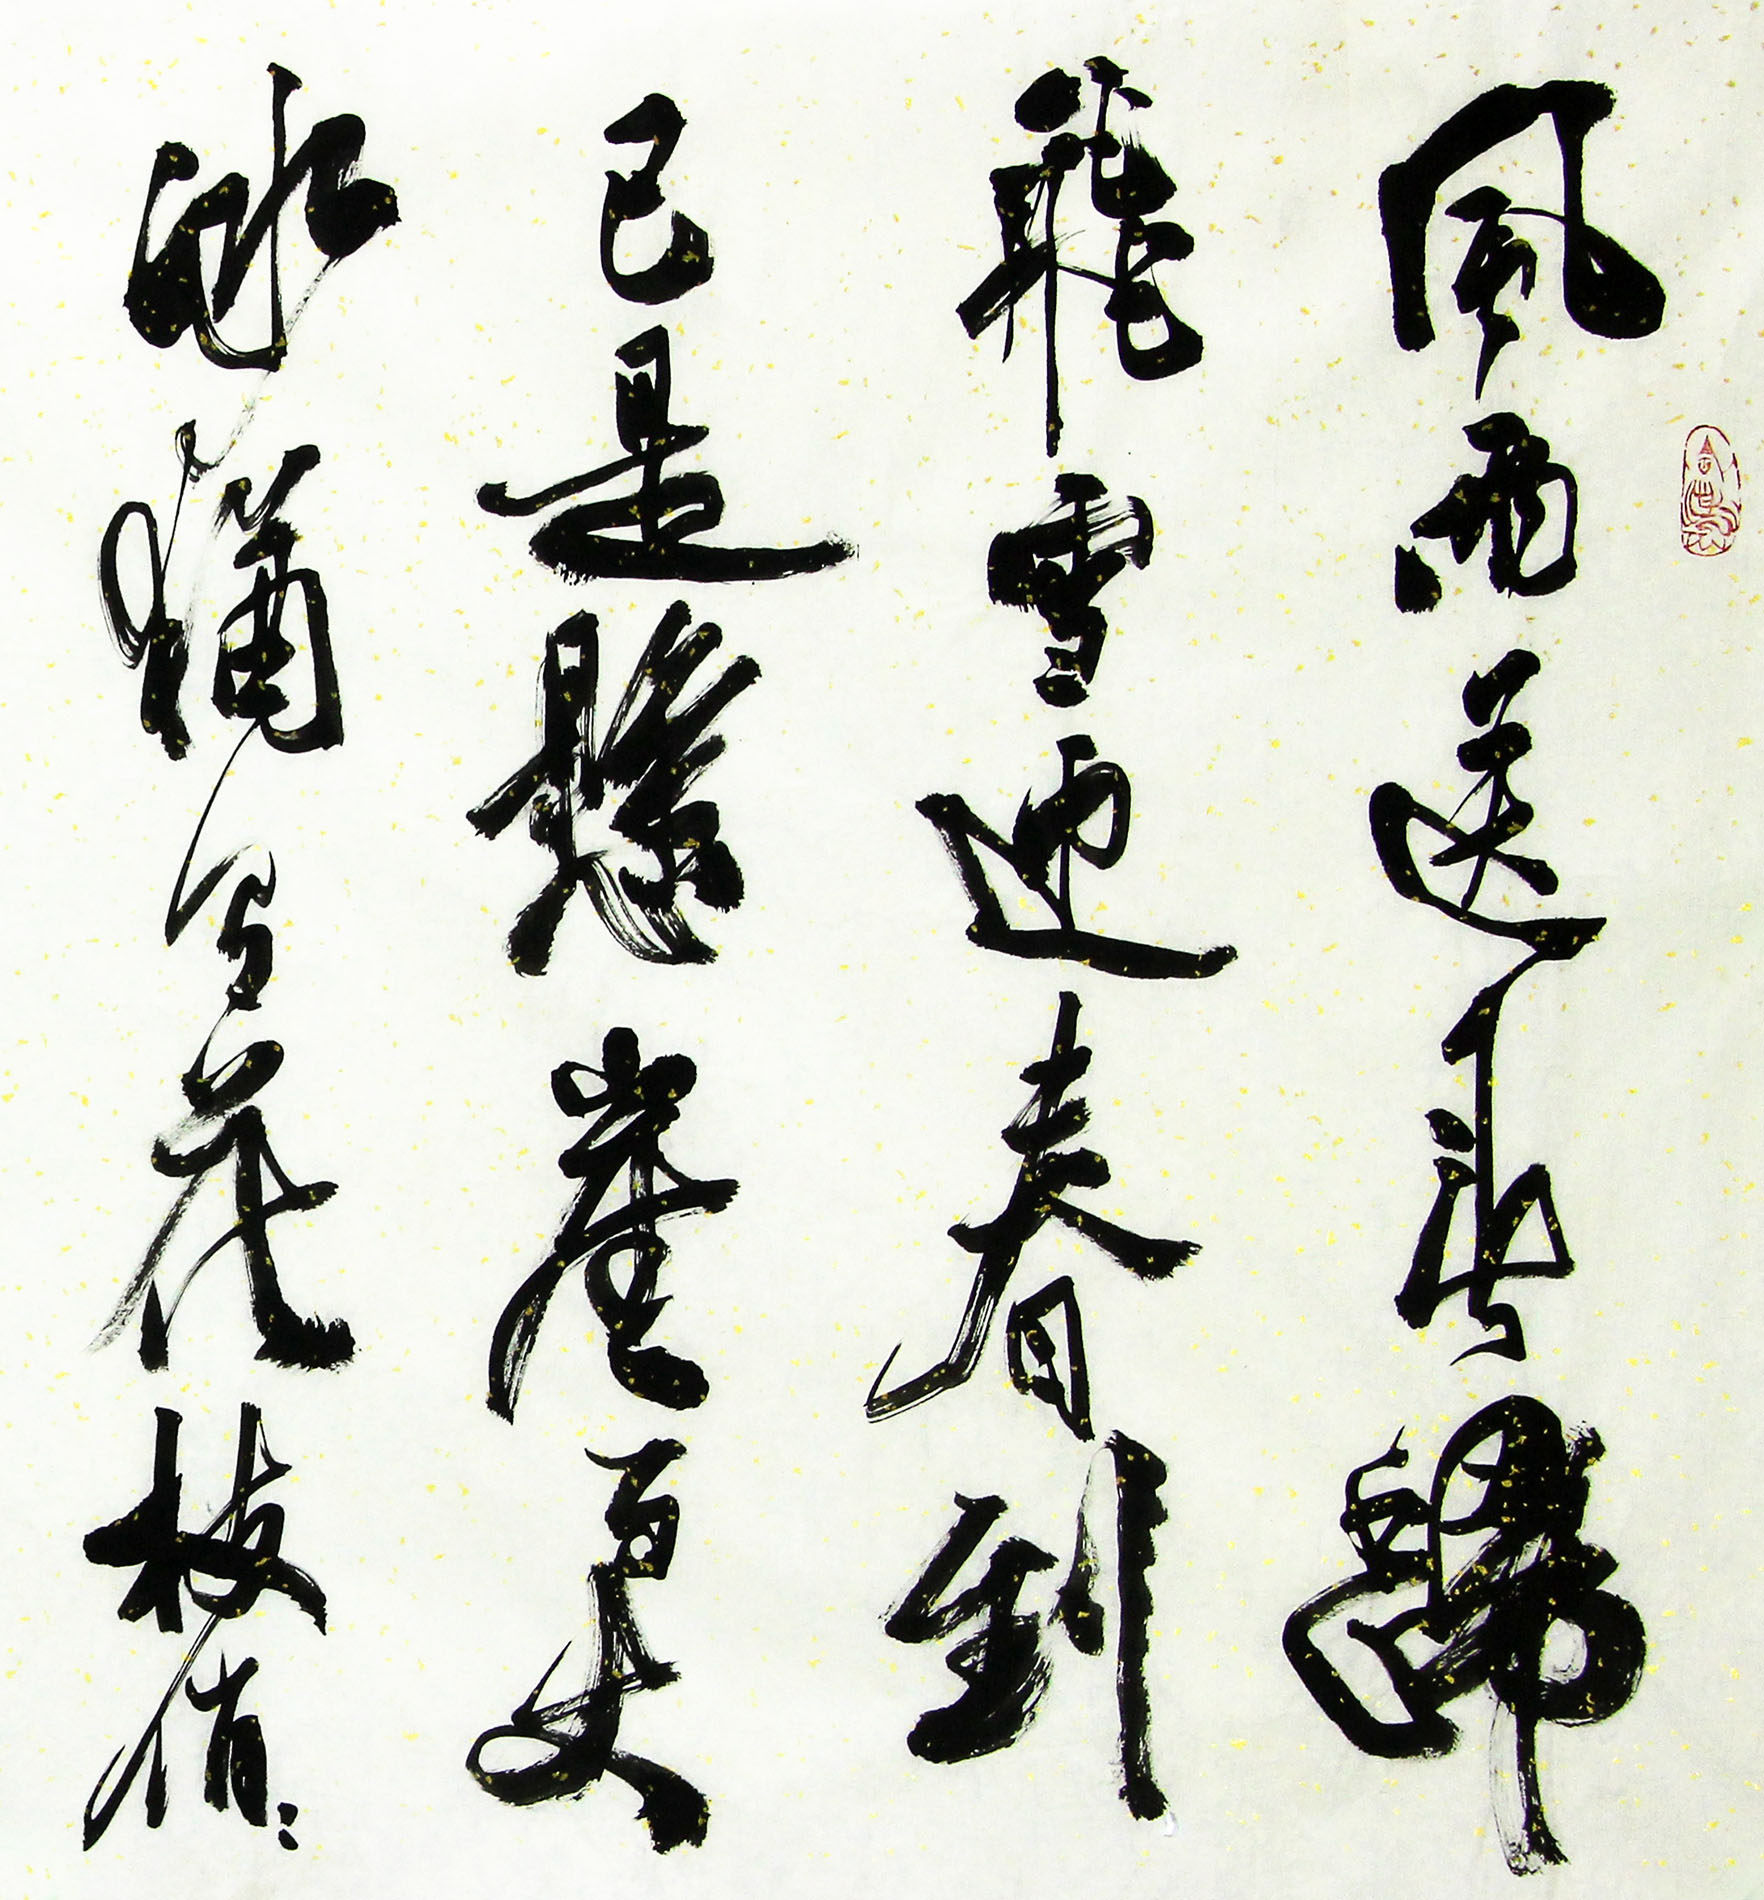 風雨送春歸
飛雪迎春到
已是懸崖百丈
冰猶有花枝俏〻